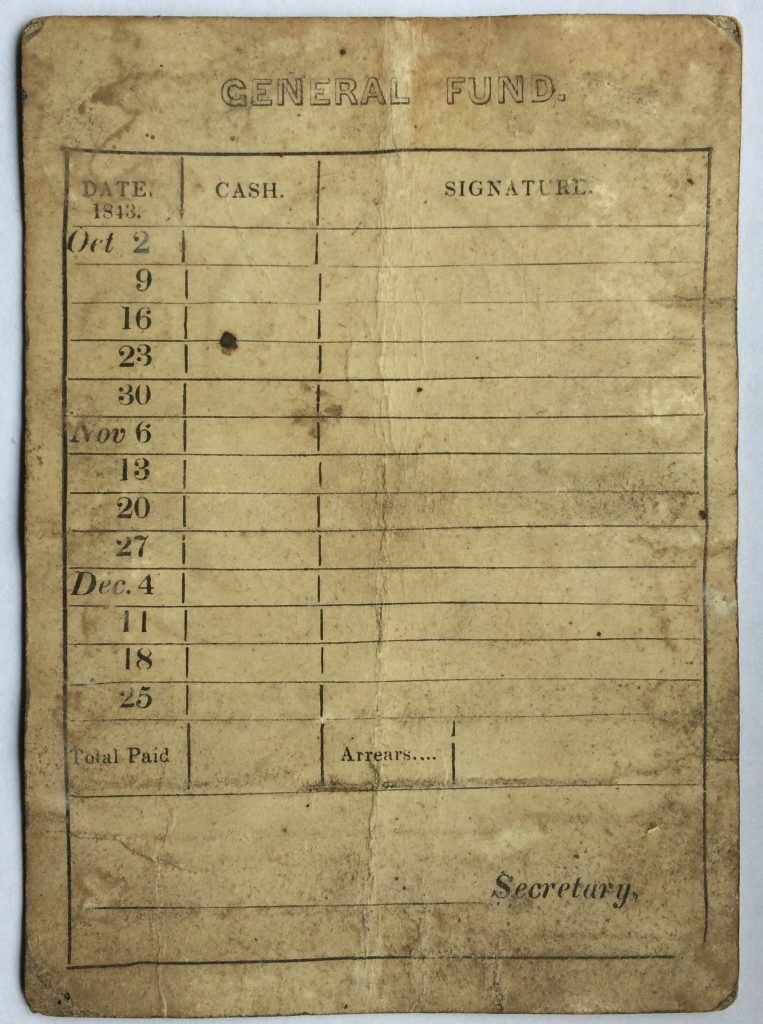 GENERAL FUND.
DATE. CASH. SIGNATURE.
1843.
Oct 2
9
16
23
30
Nov 6
13
20
27
Dec. 4
11
18
25
Total Paid Arrears....
Secretary.